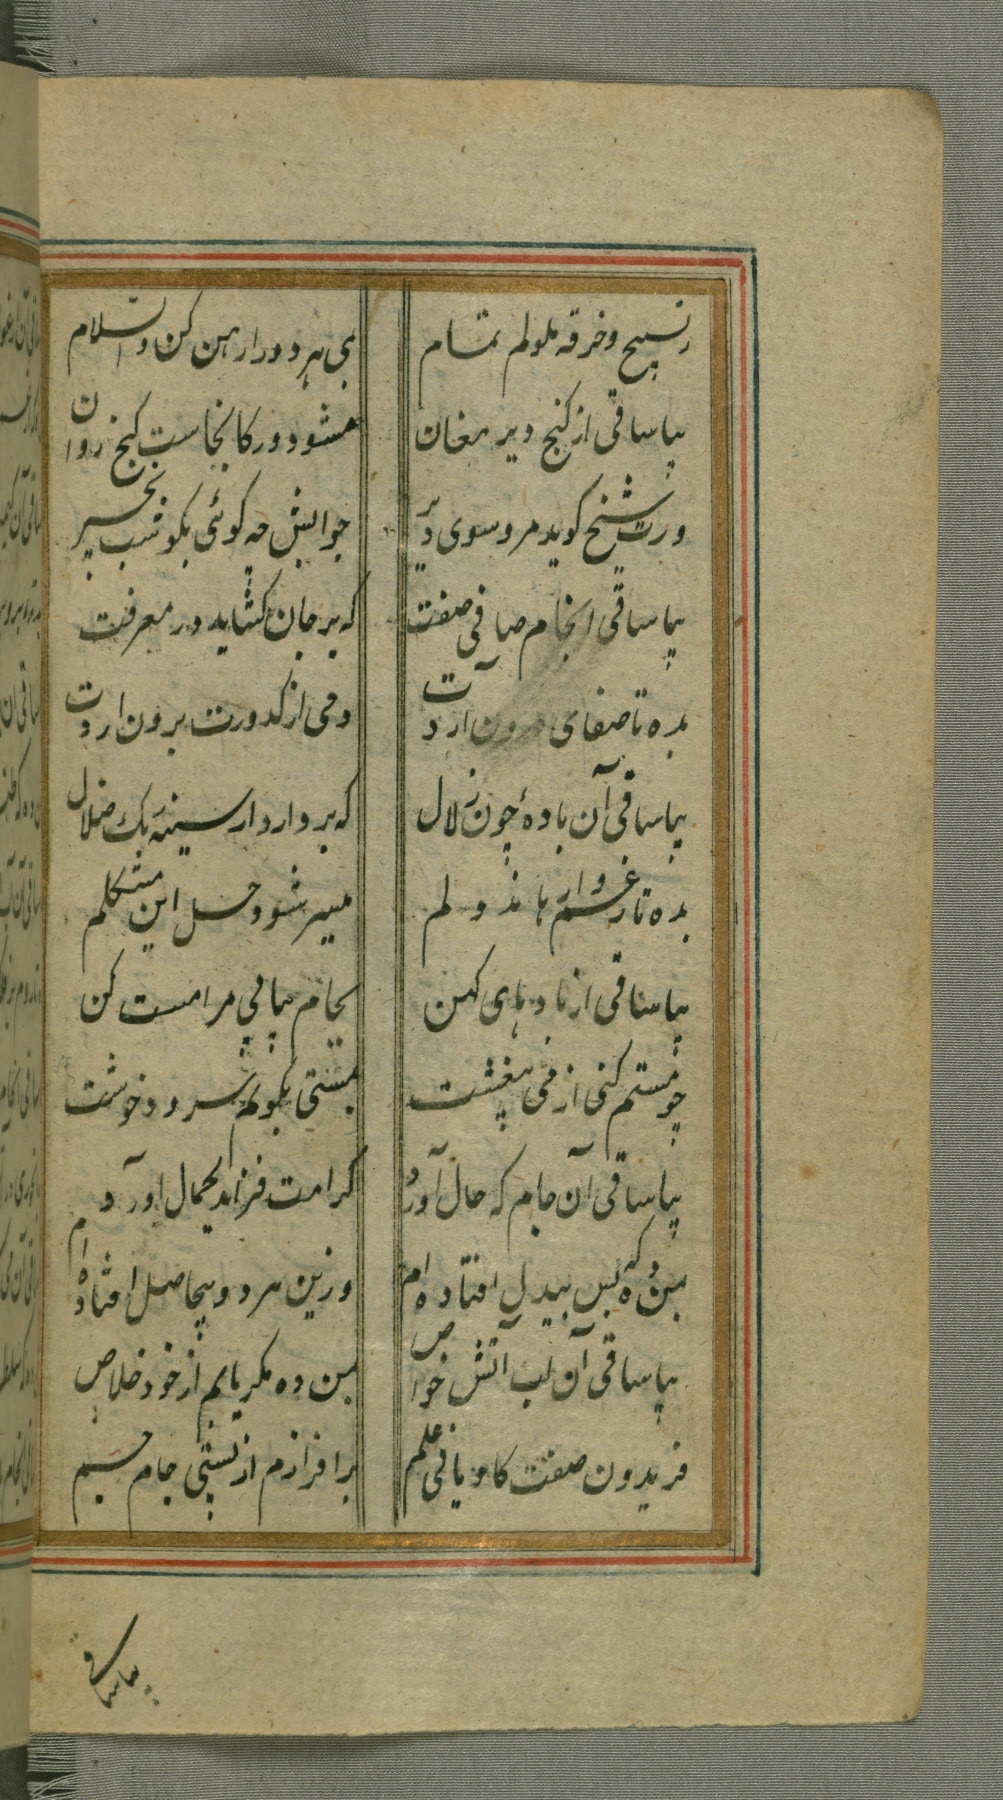 ز تسبیح و خرقه ملولم تمام
بمی هر دو را رهن کن والسلام
بیا ساقی از کنج دیر مغان
مشو دور کانجاست گنج روان
ورت شیخ گوید مرو سوی دیر
جوابش چه گوئی بگو شب بخیر
بیا ساقی آن جام صافی صفت
که بر جان گشاید در معرفت
بده تا صفای درون آردت
دمی از کدورت برون آردت
بیا ساقی آن بادهٔ چون زلال
که بردارد از سینه زنگ ضلال
بده تا ز غم وا رهاند دلم
میسر شود حل این مشکلم
بیا ساقی از بادهای کهن
بجام پیاپی مرا مست کن
چو مستم کنی از می بیغشت
بمستی بگویم سرود خوشت
بیا ساقی آن جام که حال آورد
کرامت فزاید کمال آورد
بمن ده که بس بیدل افتاده ام
وزین هر دو بیحاصل افتاده ام
بیا ساقی آن لب آتش خواص
بمن ده مگر یابم از خود خلاص
فریدون صفت کاویانی علم
برافرازم از پستی جام جم
بیا ساقی